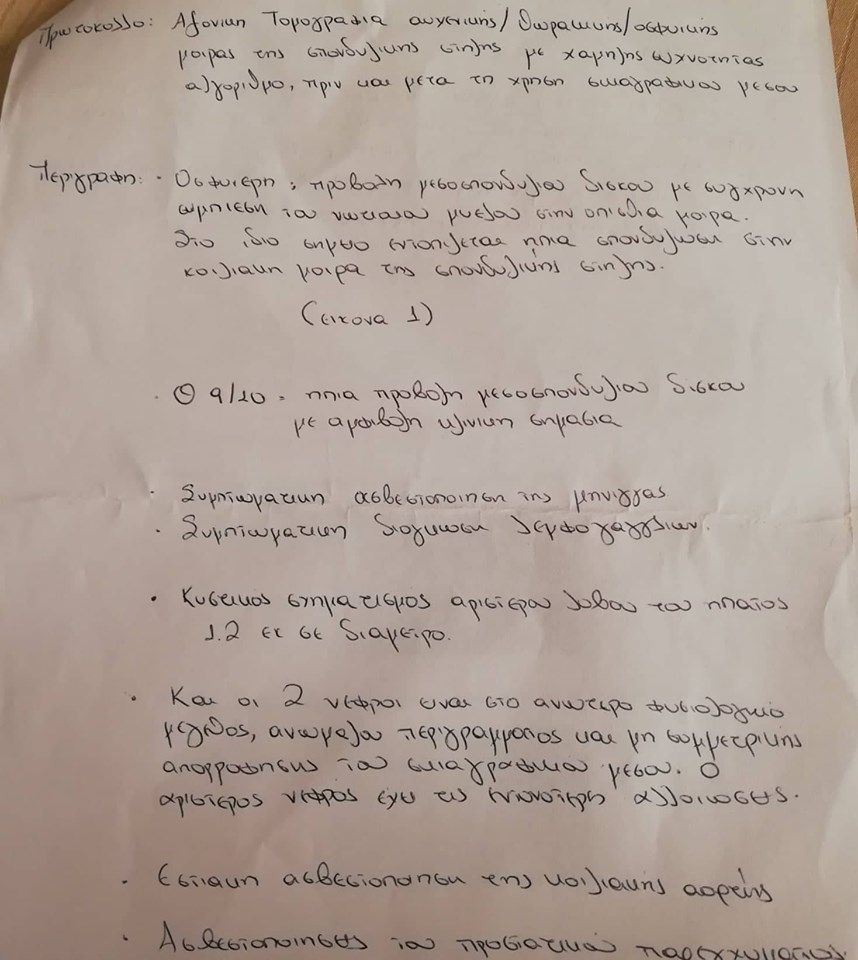 Πρωτοκολλο: Αξονικη Τομογραφια αυχενικής/θωρακικης/οσφυικής
μοιρας της σπονδυλικης στηλης με χαμηλης συχνοτητας
αλγοριθμο, πριν και μετα τη χρηση σκιαγραφικου μεσου
Περιγραφη: · Οσφυιερη : προβολη μεσοσπονδυλιου δισκου με συγχρονη
συμπιεση του νωτιαιου μυελου στην οπισθια μοιρα.
Στο ιδιο σημειο εντοπιζεται ηπια σπονδυλωση στην
κοιλιακη μοιρα της σπονδυλικής στηλης.
(εικονα 1)
· Θ 9/10 : ηπια προβολη μεσοσπονδυλιου δισκου
με αμφιβολη κλινικη σημασια
· Συμπτωματικη ασβεστοποιηση της μηνιγγας
· Συμπτωματικη διογκωση λεμφογαγγλιων.
· Κυστικος σχηματισμος αριστερου λοβου του ηπατος
1.2 εκ σε διαμετρο.
· Και οι 2 νεφροι ειναι στο ανωτερο φυσιολογικο
μεγεθος, ανωμαλου περιγραμματος και μη συμμετρικής
απορροφησης του σκιαγραφικου μεσου. Ο
αριστερος νεφρος εχει τις εντονοτερες αλλοιωσεις.
· Εστιακη ασβεστοποιηση της κοιλιακής αορτής
· Ασβεστοποιησεις του προστατικου παρεγχυματος.